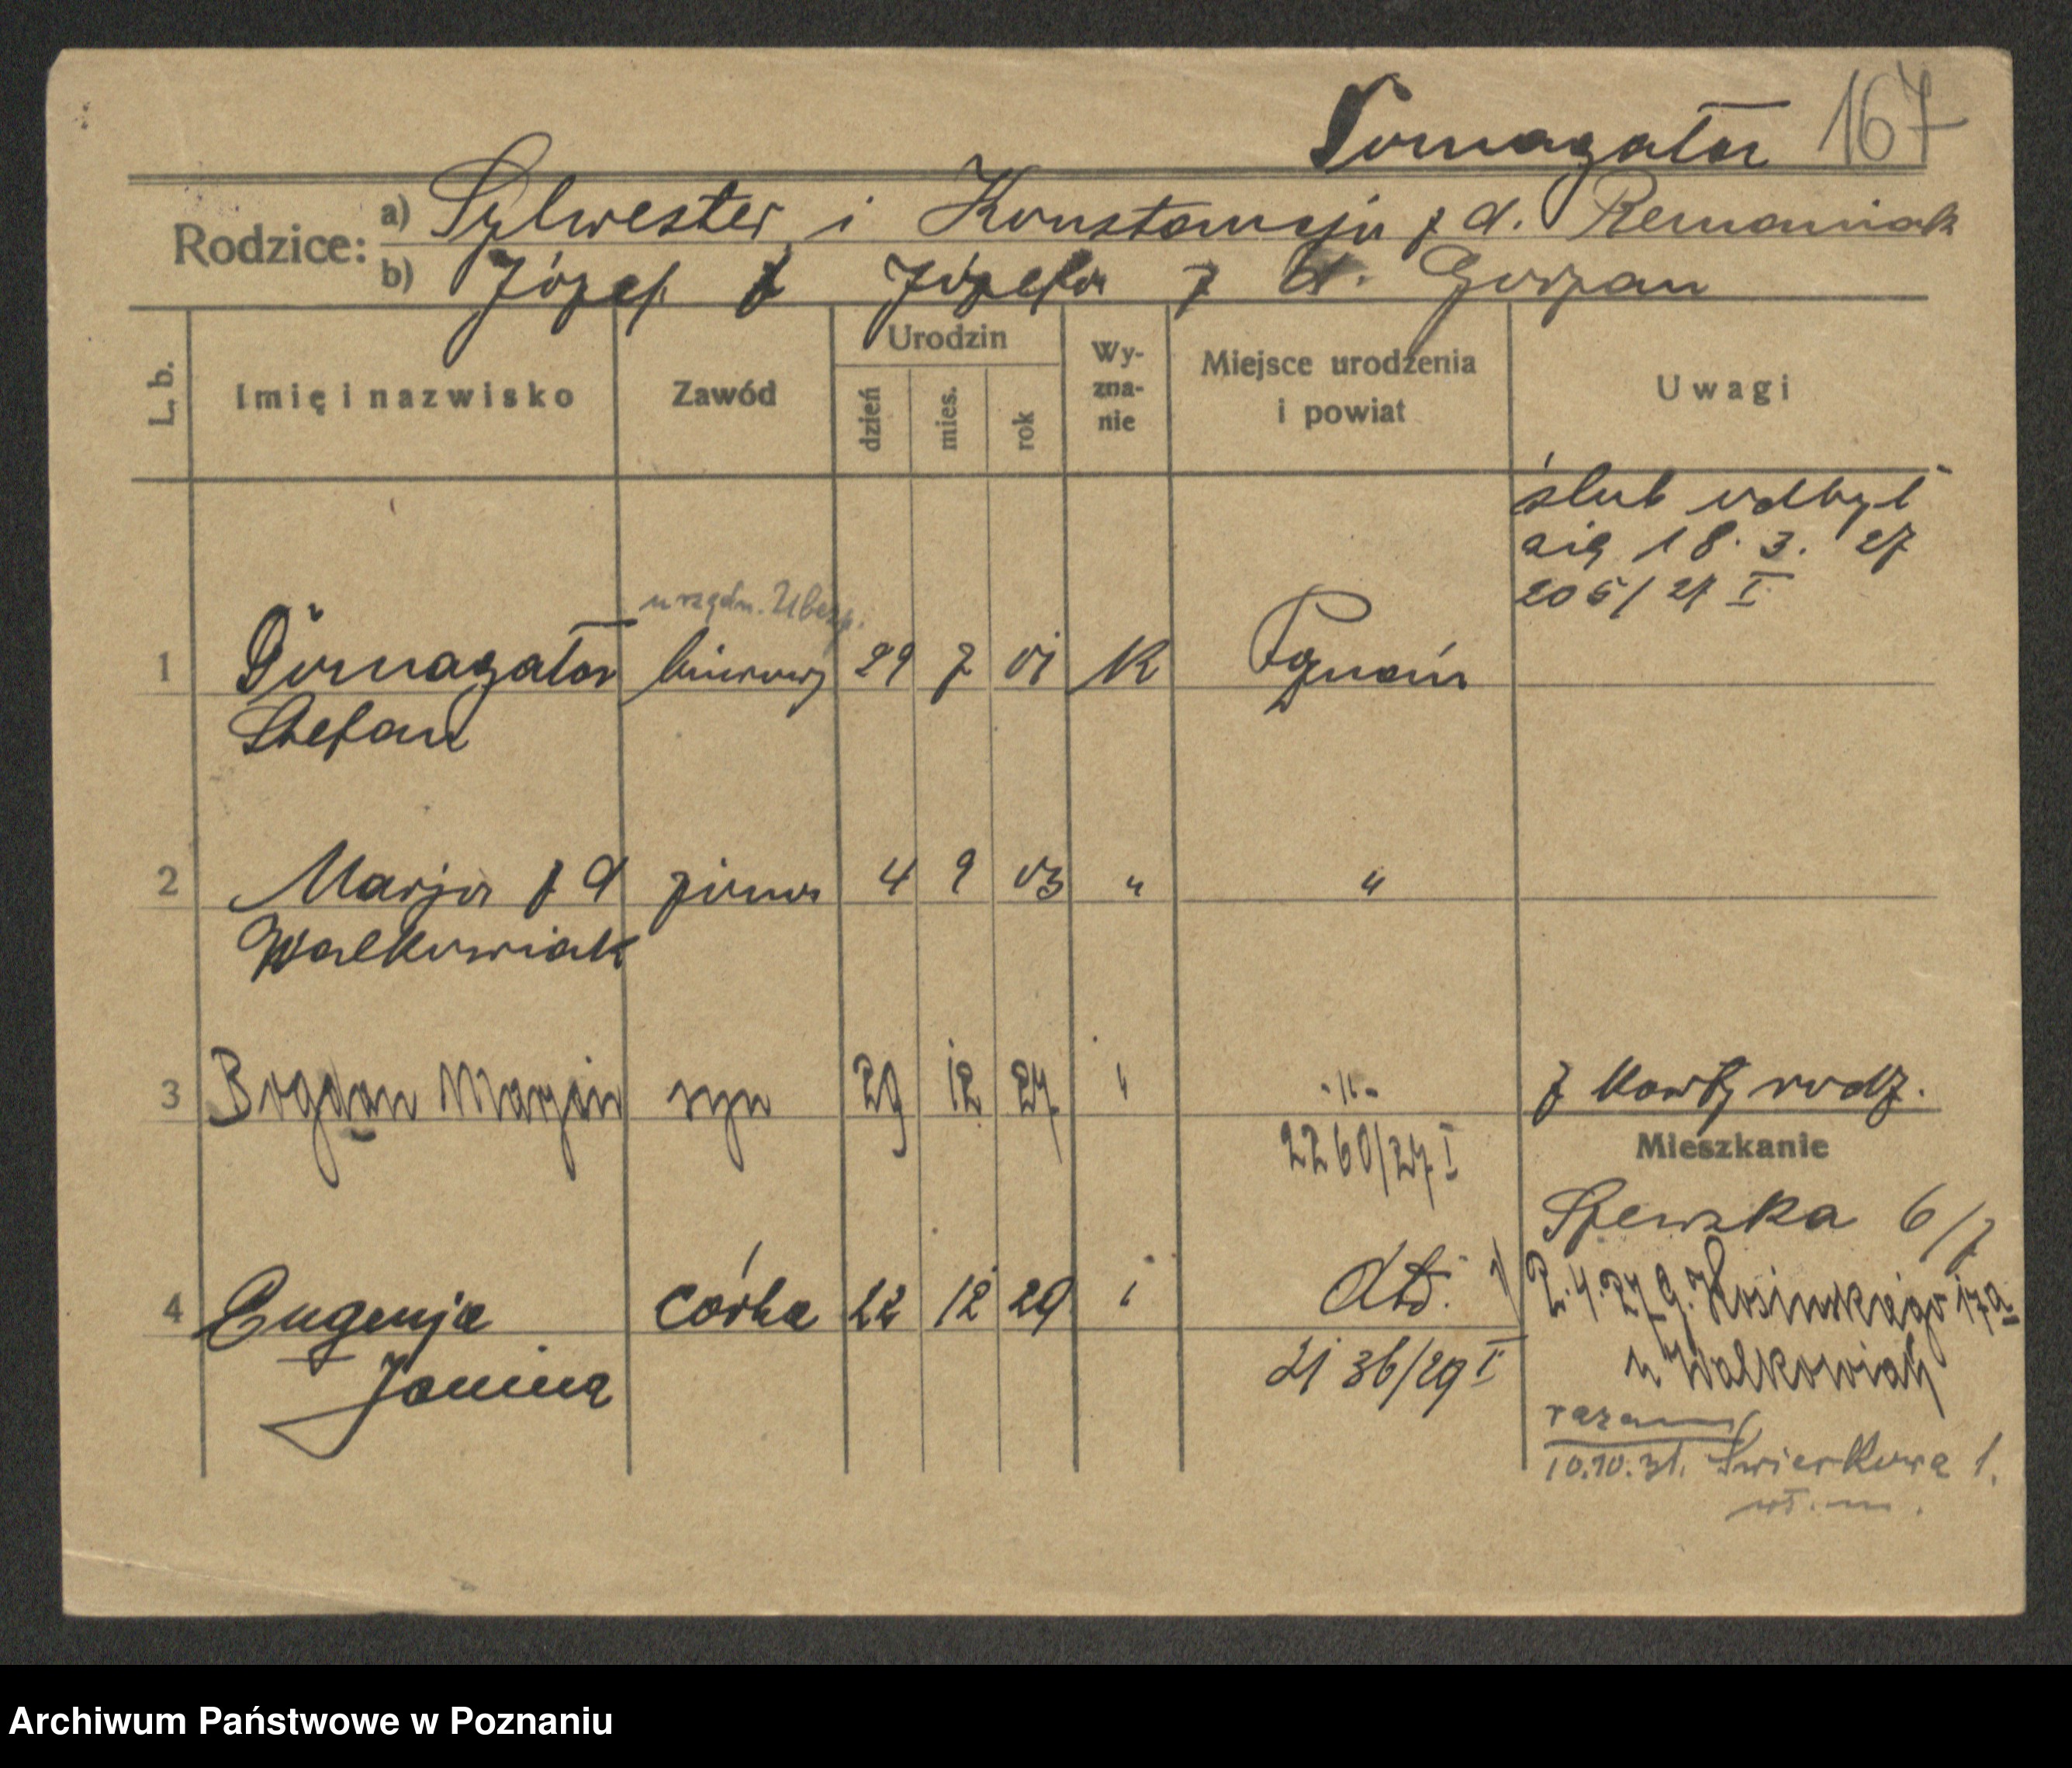 Domagała 167
Rodzice: a) Sylwester i Konstancja z d. Remaniak
b) Józef i Józefa z d.
L. b. Imię i nazwisko Zawód Urodzin dzień mies. rok Wy-zna-nie Miejsce urodzenia i powiat Uwagi
ślub odbył
się 18. 3. 27
205/27 I
urzędn. Ubezp.
1 Domagała biurowy 29 7 01 K Poznań
Stefan
2 Marja z d żona 4 9 03 " "
Walkowiak
3 Bogdan Marjan syn 29 12 27 " -"- z karty rodz.
2260/27 I
Mieszkanie
Szewska 6/7
4 Eugenja córka 22 12 29 " dtō.
Janina
2136/29 I
2.4.27 G. Kosińskiego 17a
u Walkowiak
razem
10.10.31. Świerkowa 1.
wł. m.
Archiwum Państwowe w Poznaniu